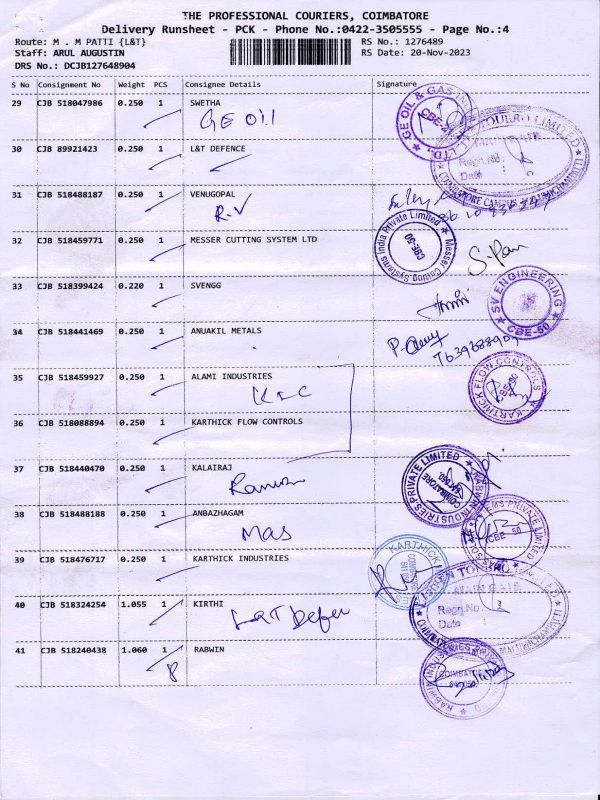 THE PROFESSIONAL COURIERS, COIMBATORE
Delivery Runsheet - PCK - Phone No.:0422-3505555 - Page No.:4
Route: M . M PATTI {L&T} RS No.: 1276489
Staff: ARUL AUGUSTIN RS Date: 20-Nov-2023
DRS No.: DCJB127648904
S No Consignment No Weight PCS Consignee Details Signature
29 CJB 518047986 0.250 1 SWETHA
GE OIl
GE OIL & GAS
CBE-21
30 CJB 89921423 0.250 1 L&T DEFENCE
LIMITED
Regn.No
Date
COIMBATORE CAMPUS
31 CJB 518488187 0.250 1 VENUGOPAL
R.V
32 CJB 518459771 0.250 1 MESSER CUTTING SYSTEM LTD
Messer Cutting Systems India Private Limited
CBE-50
33 CJB 518399424 0.220 1 SVENGG
SV ENGINEERING
CBE-50
34 CJB 518441469 0.250 1 ANUAKIL METALS
35 CJB 518459927 0.250 1 ALAMI INDUSTRIES
KFC
KARTHICK FLOW CONTROLS
36 CJB 518088894 0.250 1 KARTHICK FLOW CONTROLS
37 CJB 518440470 0.250 1 KALAIRAJ
RABWIN INDUSTRIES PRIVATE LIMITED
COIMBATORE
38 CJB 518488188 0.250 1 ANBAZHAGAM
Mas
PRIVATE LIMITED
CBE - 50
39 CJB 518476717 0.250 1 KARTHICK INDUSTRIES
KARTHICK
40 CJB 518324254 1.055 1 KIRTHI
L&T Defen
MAIN GATE
Regn.No
Date
41 CJB 518240438 1.060 1 RABWIN
COIMBATORE